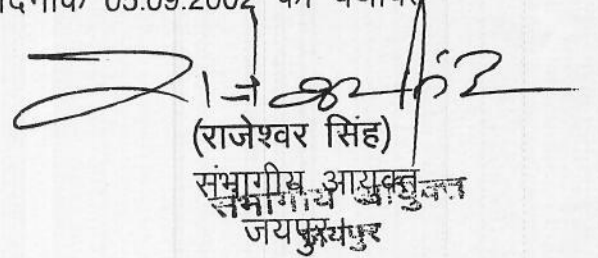 दिनांक 05.09.2002 को
(राजेश्वर सिंह)
संभागीय आयुक्त
संभागीय आयुक्त
जयपुर
जयपुर